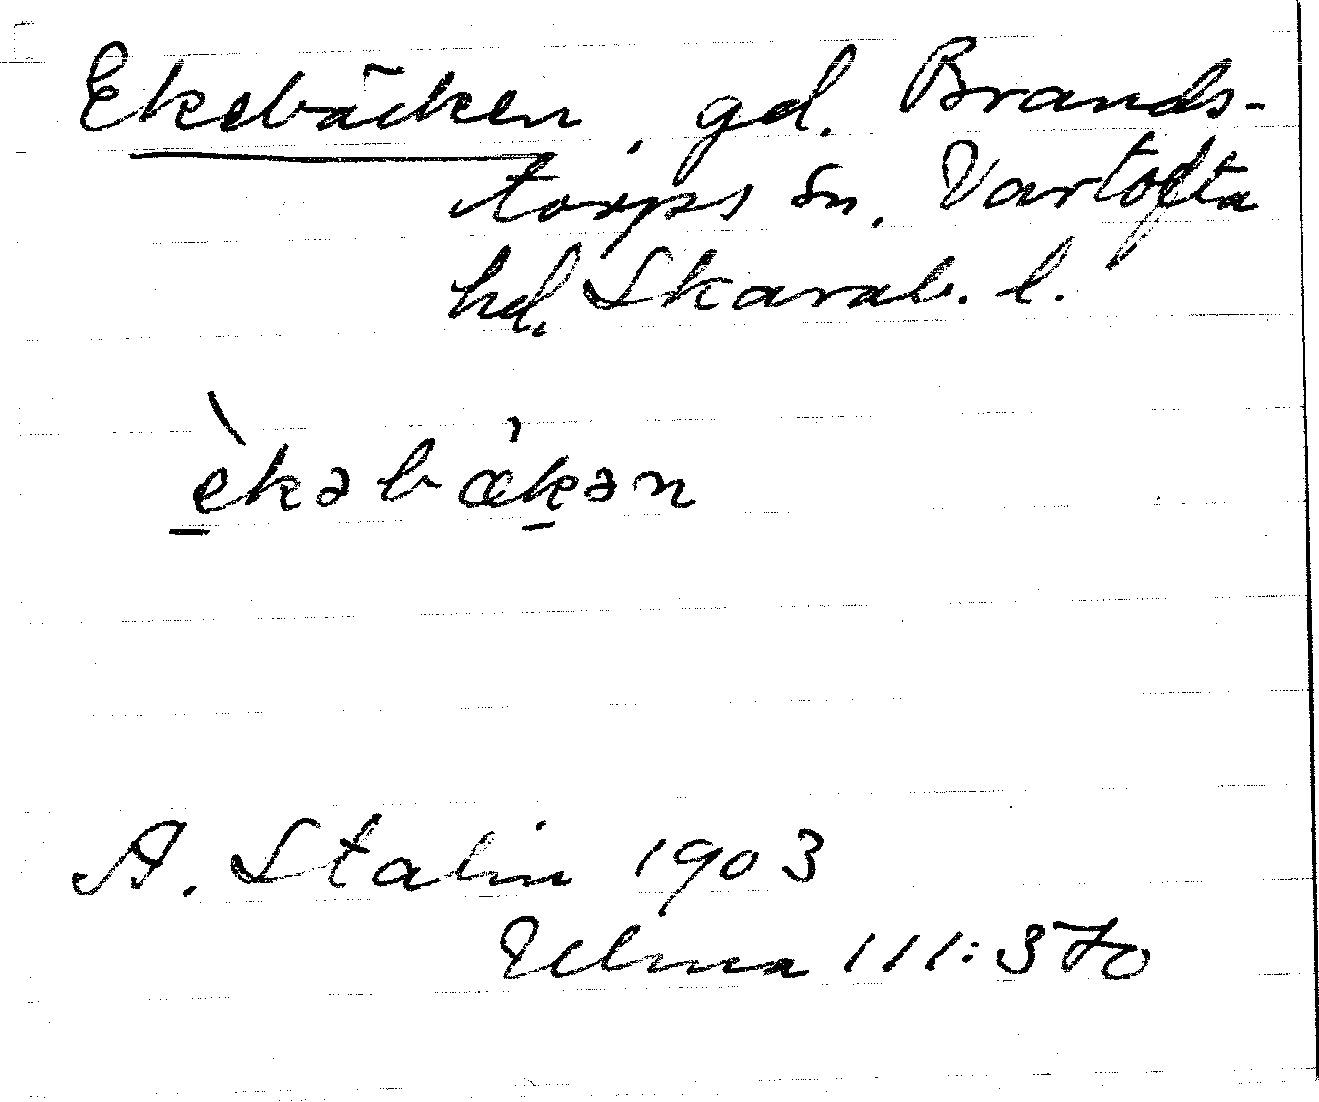 Ekebäcken, gd. Brands-
torps sn. Vartofta
hd, Skarab. l.
èkəbækən
A. Stalin 1903
Ulma 111:370